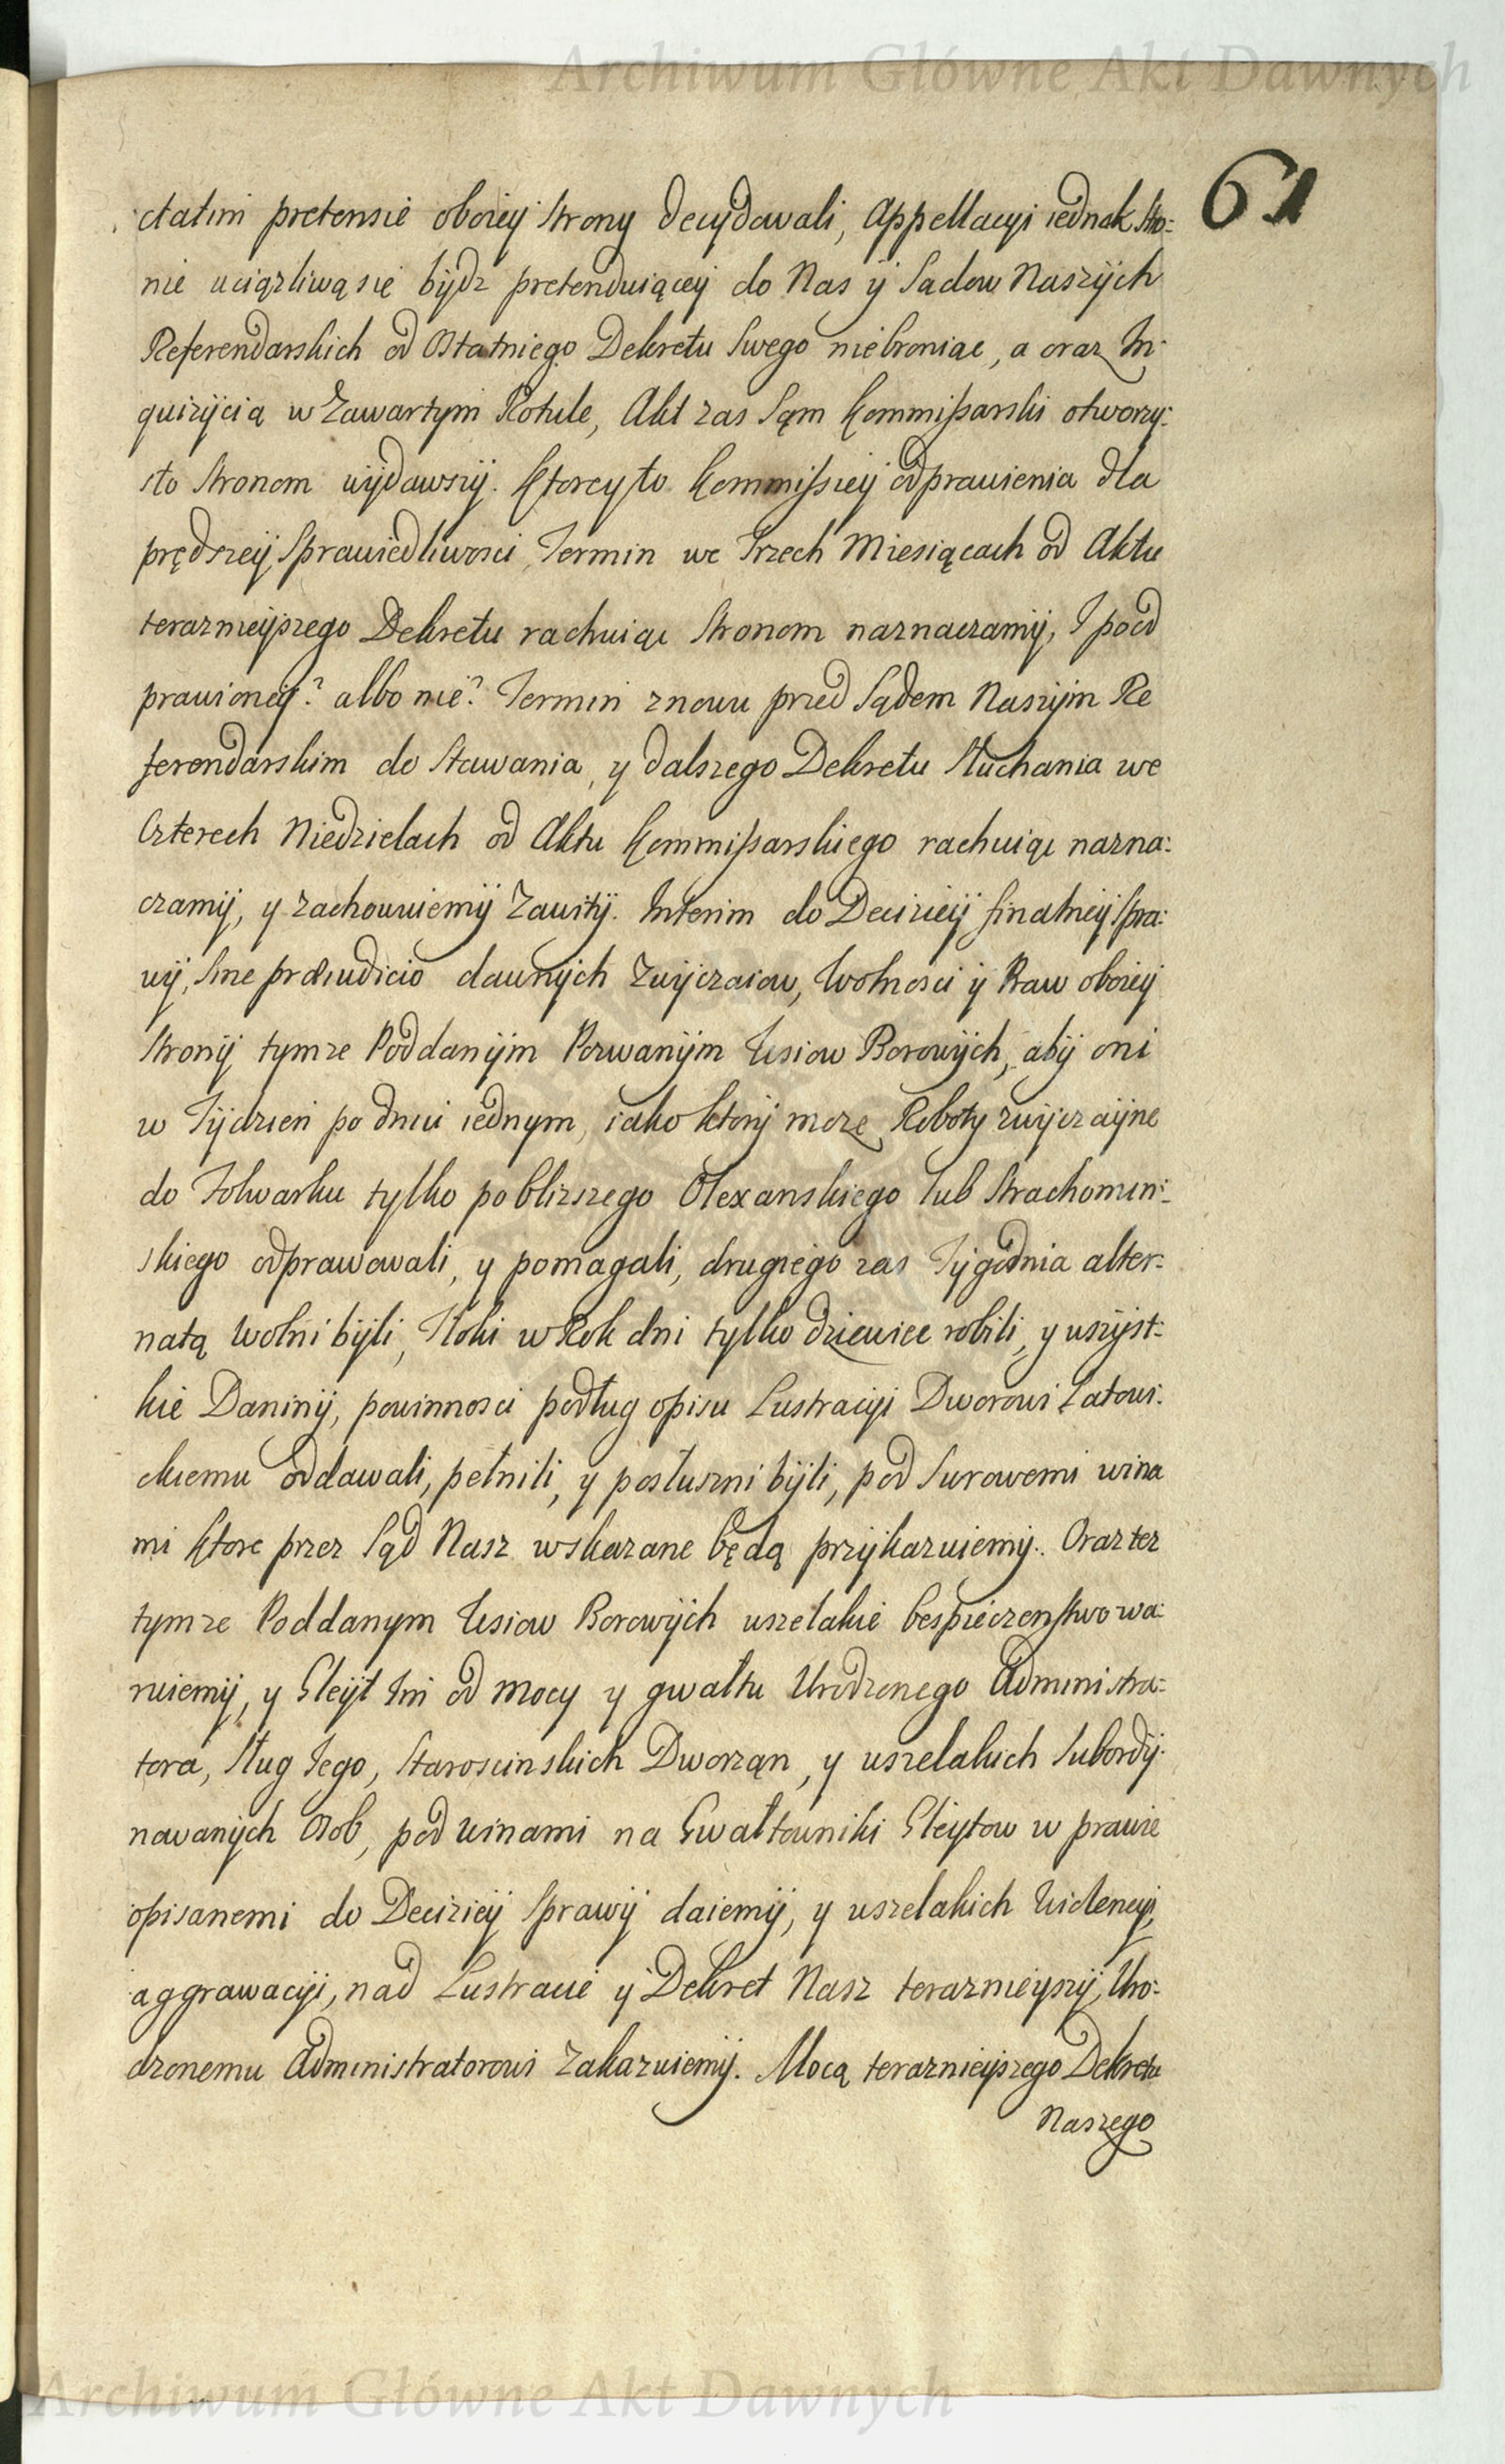 Archiwum Główne Akt Dawnych
61
ctatim pretensie oboiey Strony decydowali, Appellacyi iednak Stro:
nie uciązliwą się bydz pretenduiącey do Nas y Sadow Naszych
Referendarskich od Ostatniego Dekretu Swego niebroniac, a oraz In:
quizycią w Zawartym Rotule, Akt zas Sąm Kommissarski otworzy:
sto Stronom wydawszy. Ktorey to Kommissiey odprawienia dla
prędszey Sprawiedliwosci, Termin we Trzech Miesiącach od Aktu
teraznieyszego Dekretu rachuiąc Stronom naznaczamy, I po od
prawioney? albo nie? Termin znowu przed Sądem Naszym Re
ferendarskim do Stawania, y dalszego Dekretu Słuchania we
Czterech Niedzielach od Aktu Kommissarskiego rachuiąc nazna:
czamy, y zachowuiemy Zawity. Interim do Deciziey finalney Spra:
wy, Sine præiudicio dawnych Zwyczaiow, Wolnosci y Praw oboiey
Strony tymze Poddanym Pozwanym Wsiow Borowych, aby oni
w Tydzien po dniu iednym, iako ktory moze Roboty zwyczayne
do Folwarku tylko poblizszego Olexanskiego lub Strachomin:
skiego odprawowali, y pomagali, drugiego zas Tygodnia alter:
natą Wolni byli, Tłoki w Rok dni tylko dziewiec robili, y wszyst:
kie Daniny, powinnosci podług opisu Lustracyi Dworowi Latowi:
ckiemu oddawali, pełnili, y posłuszni byli, pod Surowemi wina
mi ktore przez Sąd Nasz wskazane będą przykazuiemy. Oraz tez
tymze Poddanym Wsiow Borowych wszelakie bespieczenstwo wa:
ruiemy, y Gleyt Im od mocy y gwałtu Urodzonego Administra:
tora, Sług Iego, Staroscinskich Dworząn, y wszelakich Subordy:
nowanych Osob, pod winami na Gwałtowniki Gleytow w prawie
opisanemi do Decizyiey Sprawy daiemy, y wszelakich Wiolencyi,
aggrawacyi, nad Lustracie y Dekret Nasz teraznieyszy, Uro:
dzonemu Administratorowi Zakazuiemy. Mocą teraznieyszego Dekretu
Naszego
Archiwum Główne Akt Dawnych